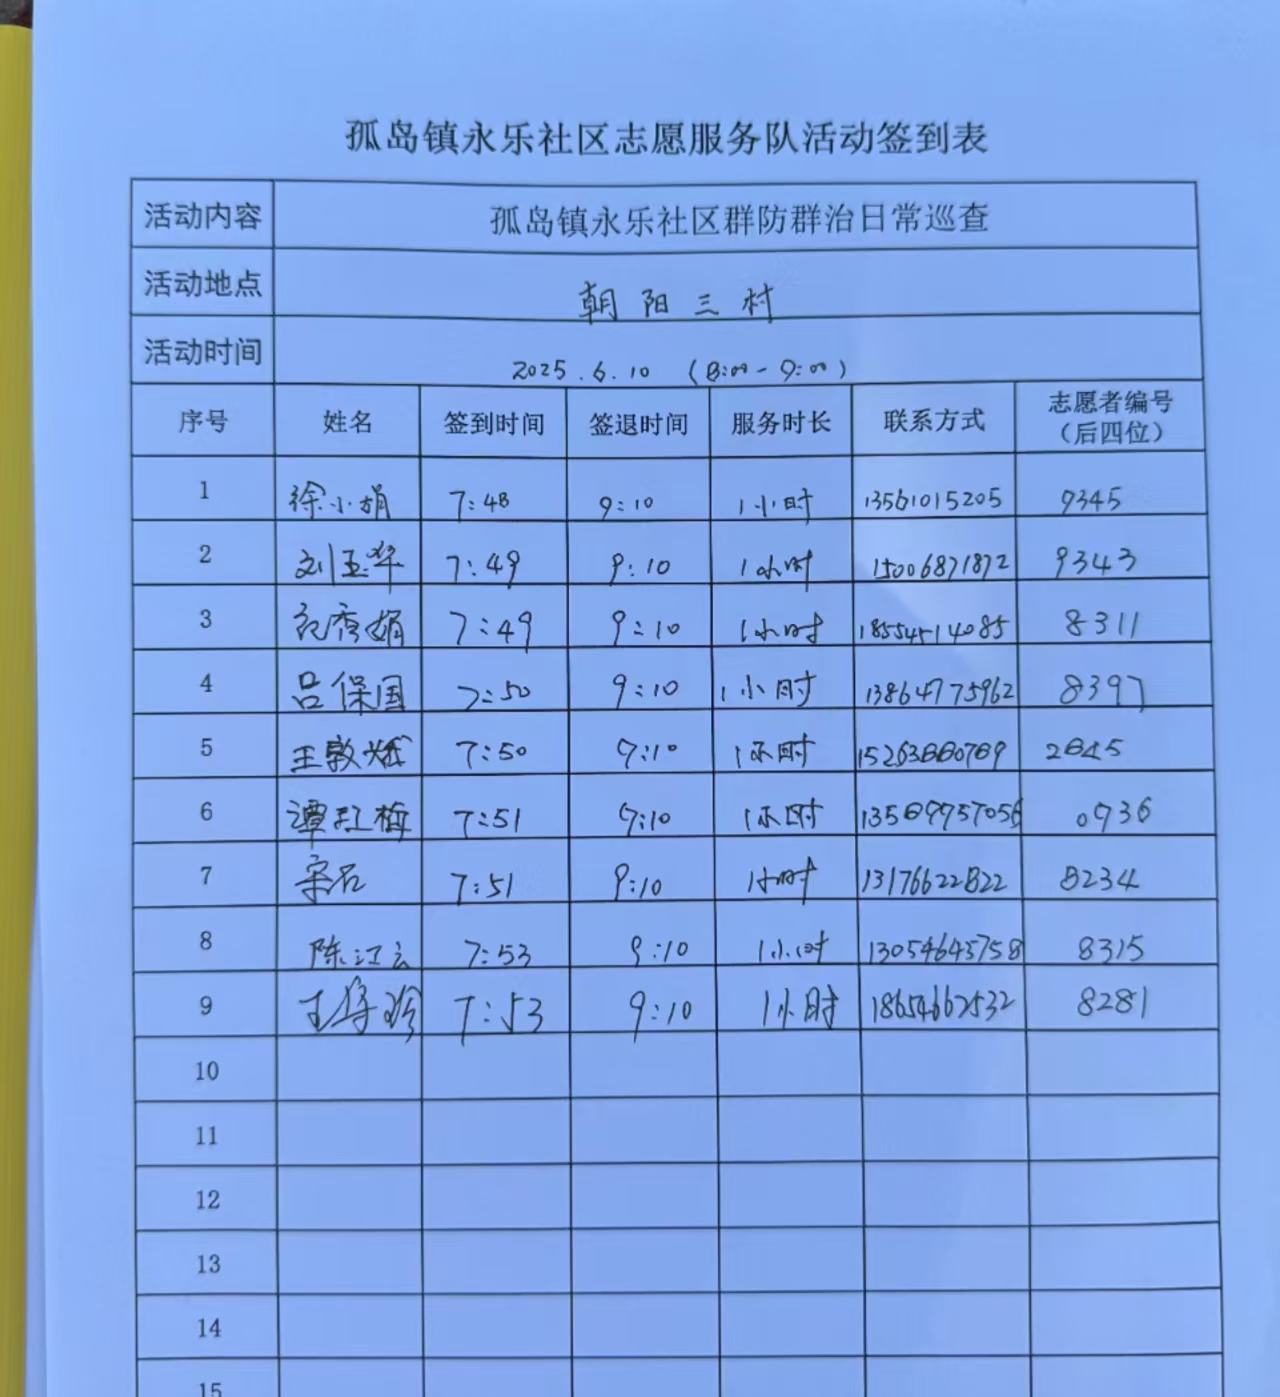 孤岛镇永乐社区志愿服务队活动签到表
活动内容 孤岛镇永乐社区群防群治日常巡查
活动地点 朝阳三村
活动时间 2025.6.10 (8:00-9:00)
序号 姓名 签到时间 签退时间 服务时长 联系方式 志愿者编号（后四位）
1 徐小娟 7:48 9:10 1小时 13561015205 9345
2 刘玉华 7:49 9:10 1小时 15006871872 9343
3 秀娟 7:49 9:10 1小时 18554514085 8311
4 吕保国 7:50 9:10 1小时 13864775962 8397
5 王敦 7:50 9:10 1小时 15263880789 2845
6 谭红梅 7:51 9:10 1小时 13589957056 0936
7 7:51 9:10 1小时 13176622822 8234
8 陈江云 7:53 9:10 1小时 13054643758 8315
9 王 7:53 9:10 1小时 18654662532 8281
10
11
12
13
14
15